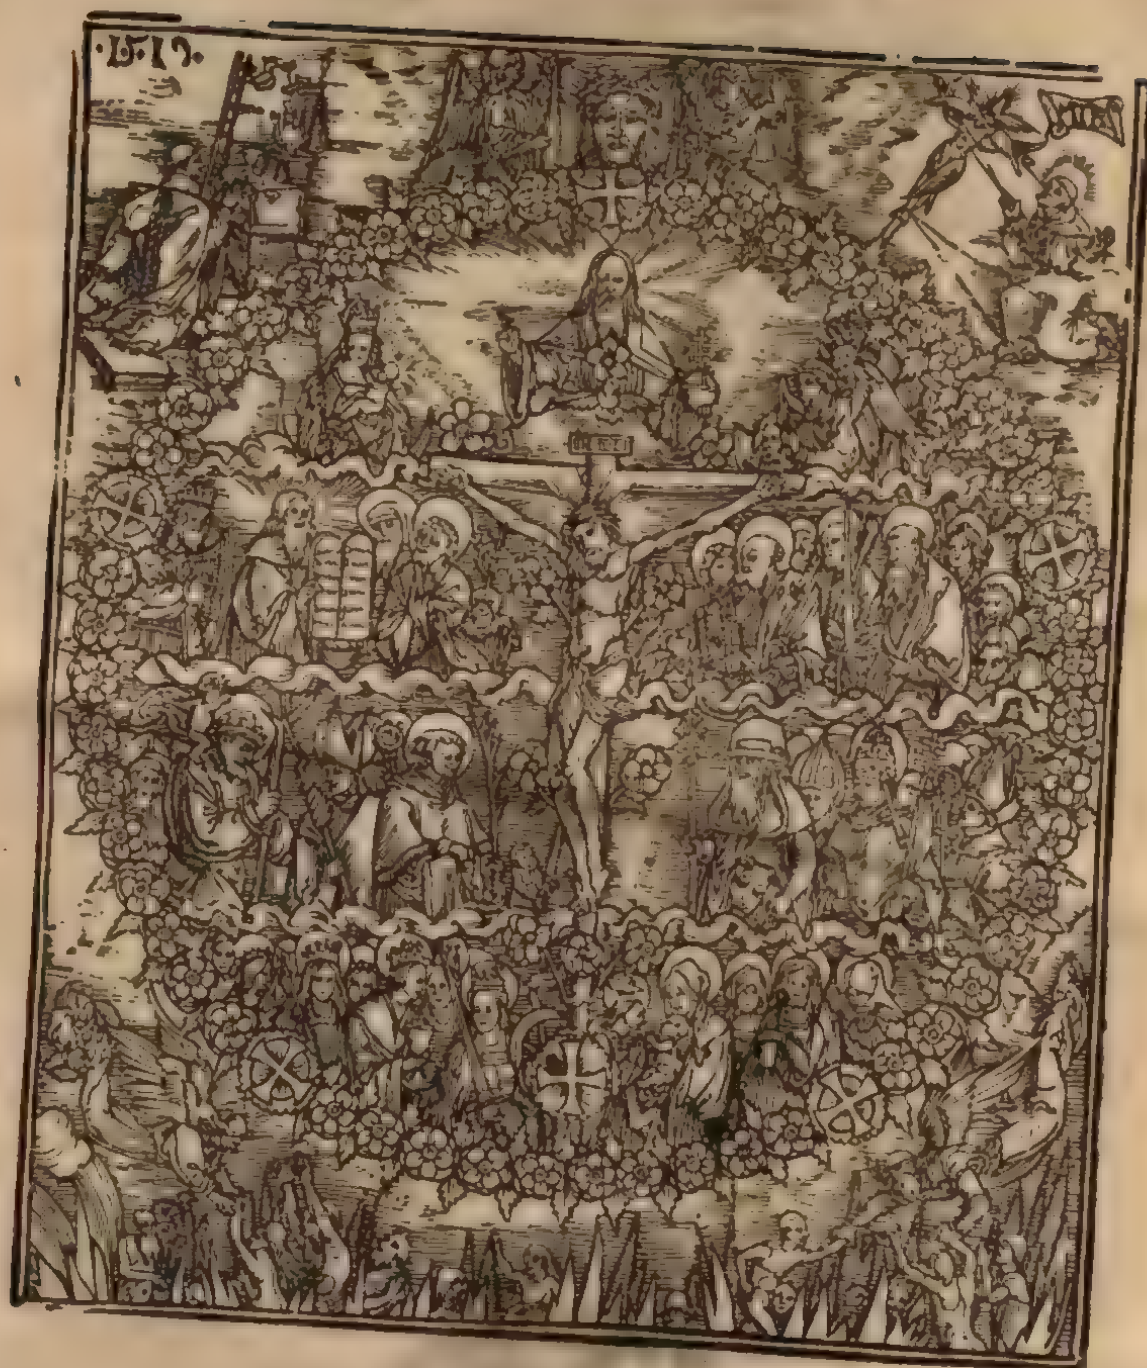 ·1519·
INRI